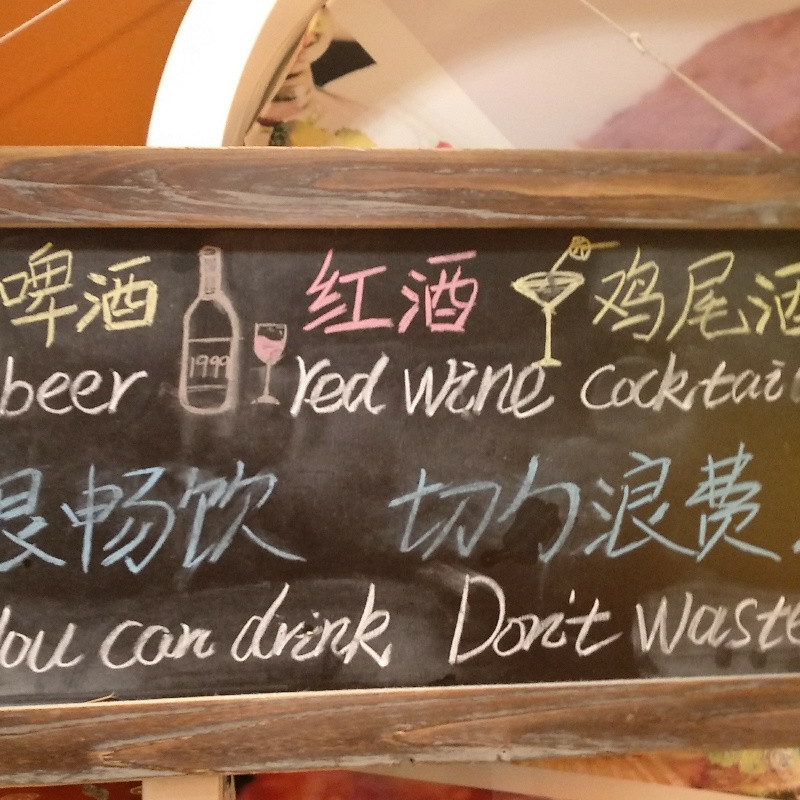 啤酒 1999 红酒 鸡尾酒
beer red wine cocktai
限畅饮 切勿浪费
You can drink Don't waste